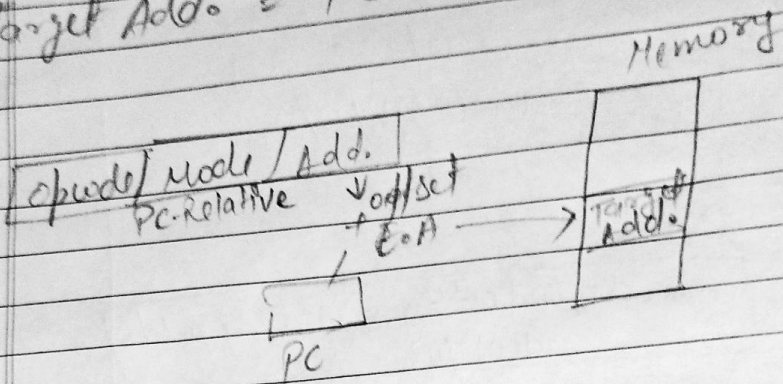 arget Add. =
Memory
Opcode Mode Add.
PC-Relative offset
+ E.A Target
Add.
PC